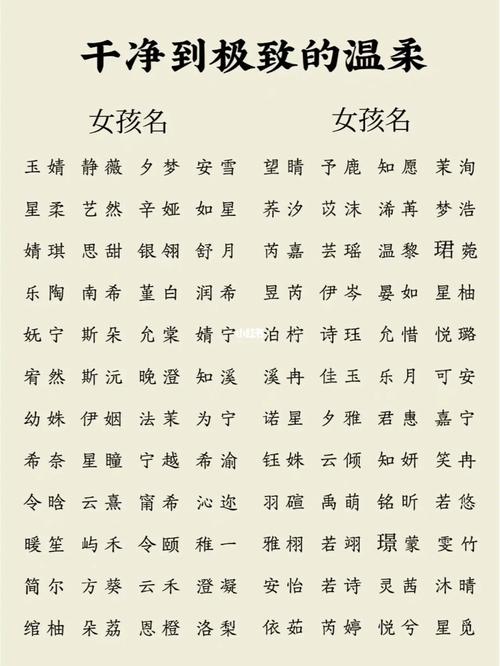 干净到极致的温柔
女孩名 女孩名
玉婧 静薇 夕梦 安雪 望晴 予鹿 知愿 茉洵
星柔 艺然 辛娅 如星 荞汐 苡沫 浠苒 梦浩
婧琪 思甜 银翎 舒月 芮嘉 芸瑶 温黎 珺菀
乐陶 南希 堇白 润希 昱芮 伊岑 晏如 星柚
妩宁 斯朵 允棠 婧宁 泊柠 诗珏 允惜 悦璐
宥然 斯沅 晚澄 知溪 溪冉 佳玉 乐月 可安
幼姝 伊姻 法茉 为宁 诺星 夕雅 君惠 嘉宁
希奈 星瞳 宁越 希渝 钰姝 云倾 知妍 笑冉
令晗 云熹 甯希 沁迩 羽碹 禹萌 铭昕 若悠
暖笙 屿禾 令颐 稚一 雅栩 若翊 璟蒙 雯竹
简尔 方葵 云禾 澄凝 安怡 若诗 灵茜 沐晴
绾柚 朵荔 恩橙 洛梨 依茹 芮婷 悦兮 星觅
小红书